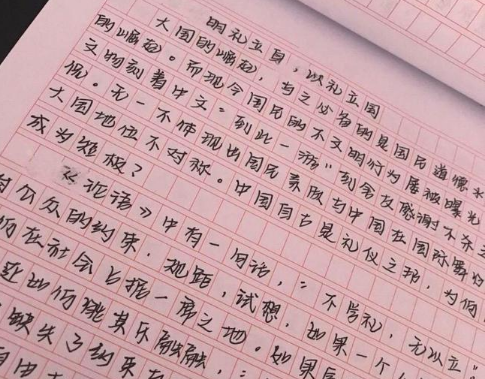 明礼立身，以礼立国
大国的崛起，与之必备的是国民道德水
的崛起。而现今国民的不文明行为屡被曝光
文物刻着中文"到此一游"到舍友感谢不杀之
侃。无一不体现出国民素质与中国在国际舞台
大国地位不对称。中国自古是礼仪之邦，为何
成为短板？
《论语》中有一句话，：不学礼，无以立"
公众的约束，规距，试想，如果一个人
在社会占据一席之地。如果
们能其乐融融，
缺失了约束
自由